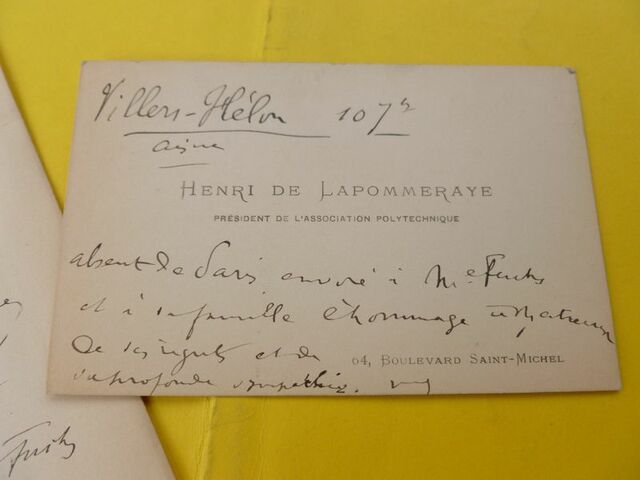 Villers-Hélon 107
Aisne
HENRI DE LAPOMMERAYE
PRÉSIDENT DE L'ASSOCIATION POLYTECHNIQUE
absent de Paris envoie à Me Fuchs
et à sa famille l'hommage
de ses regrets et de
64, BOULEVARD SAINT-MICHEL
sa profonde sympathie.
Fuchs